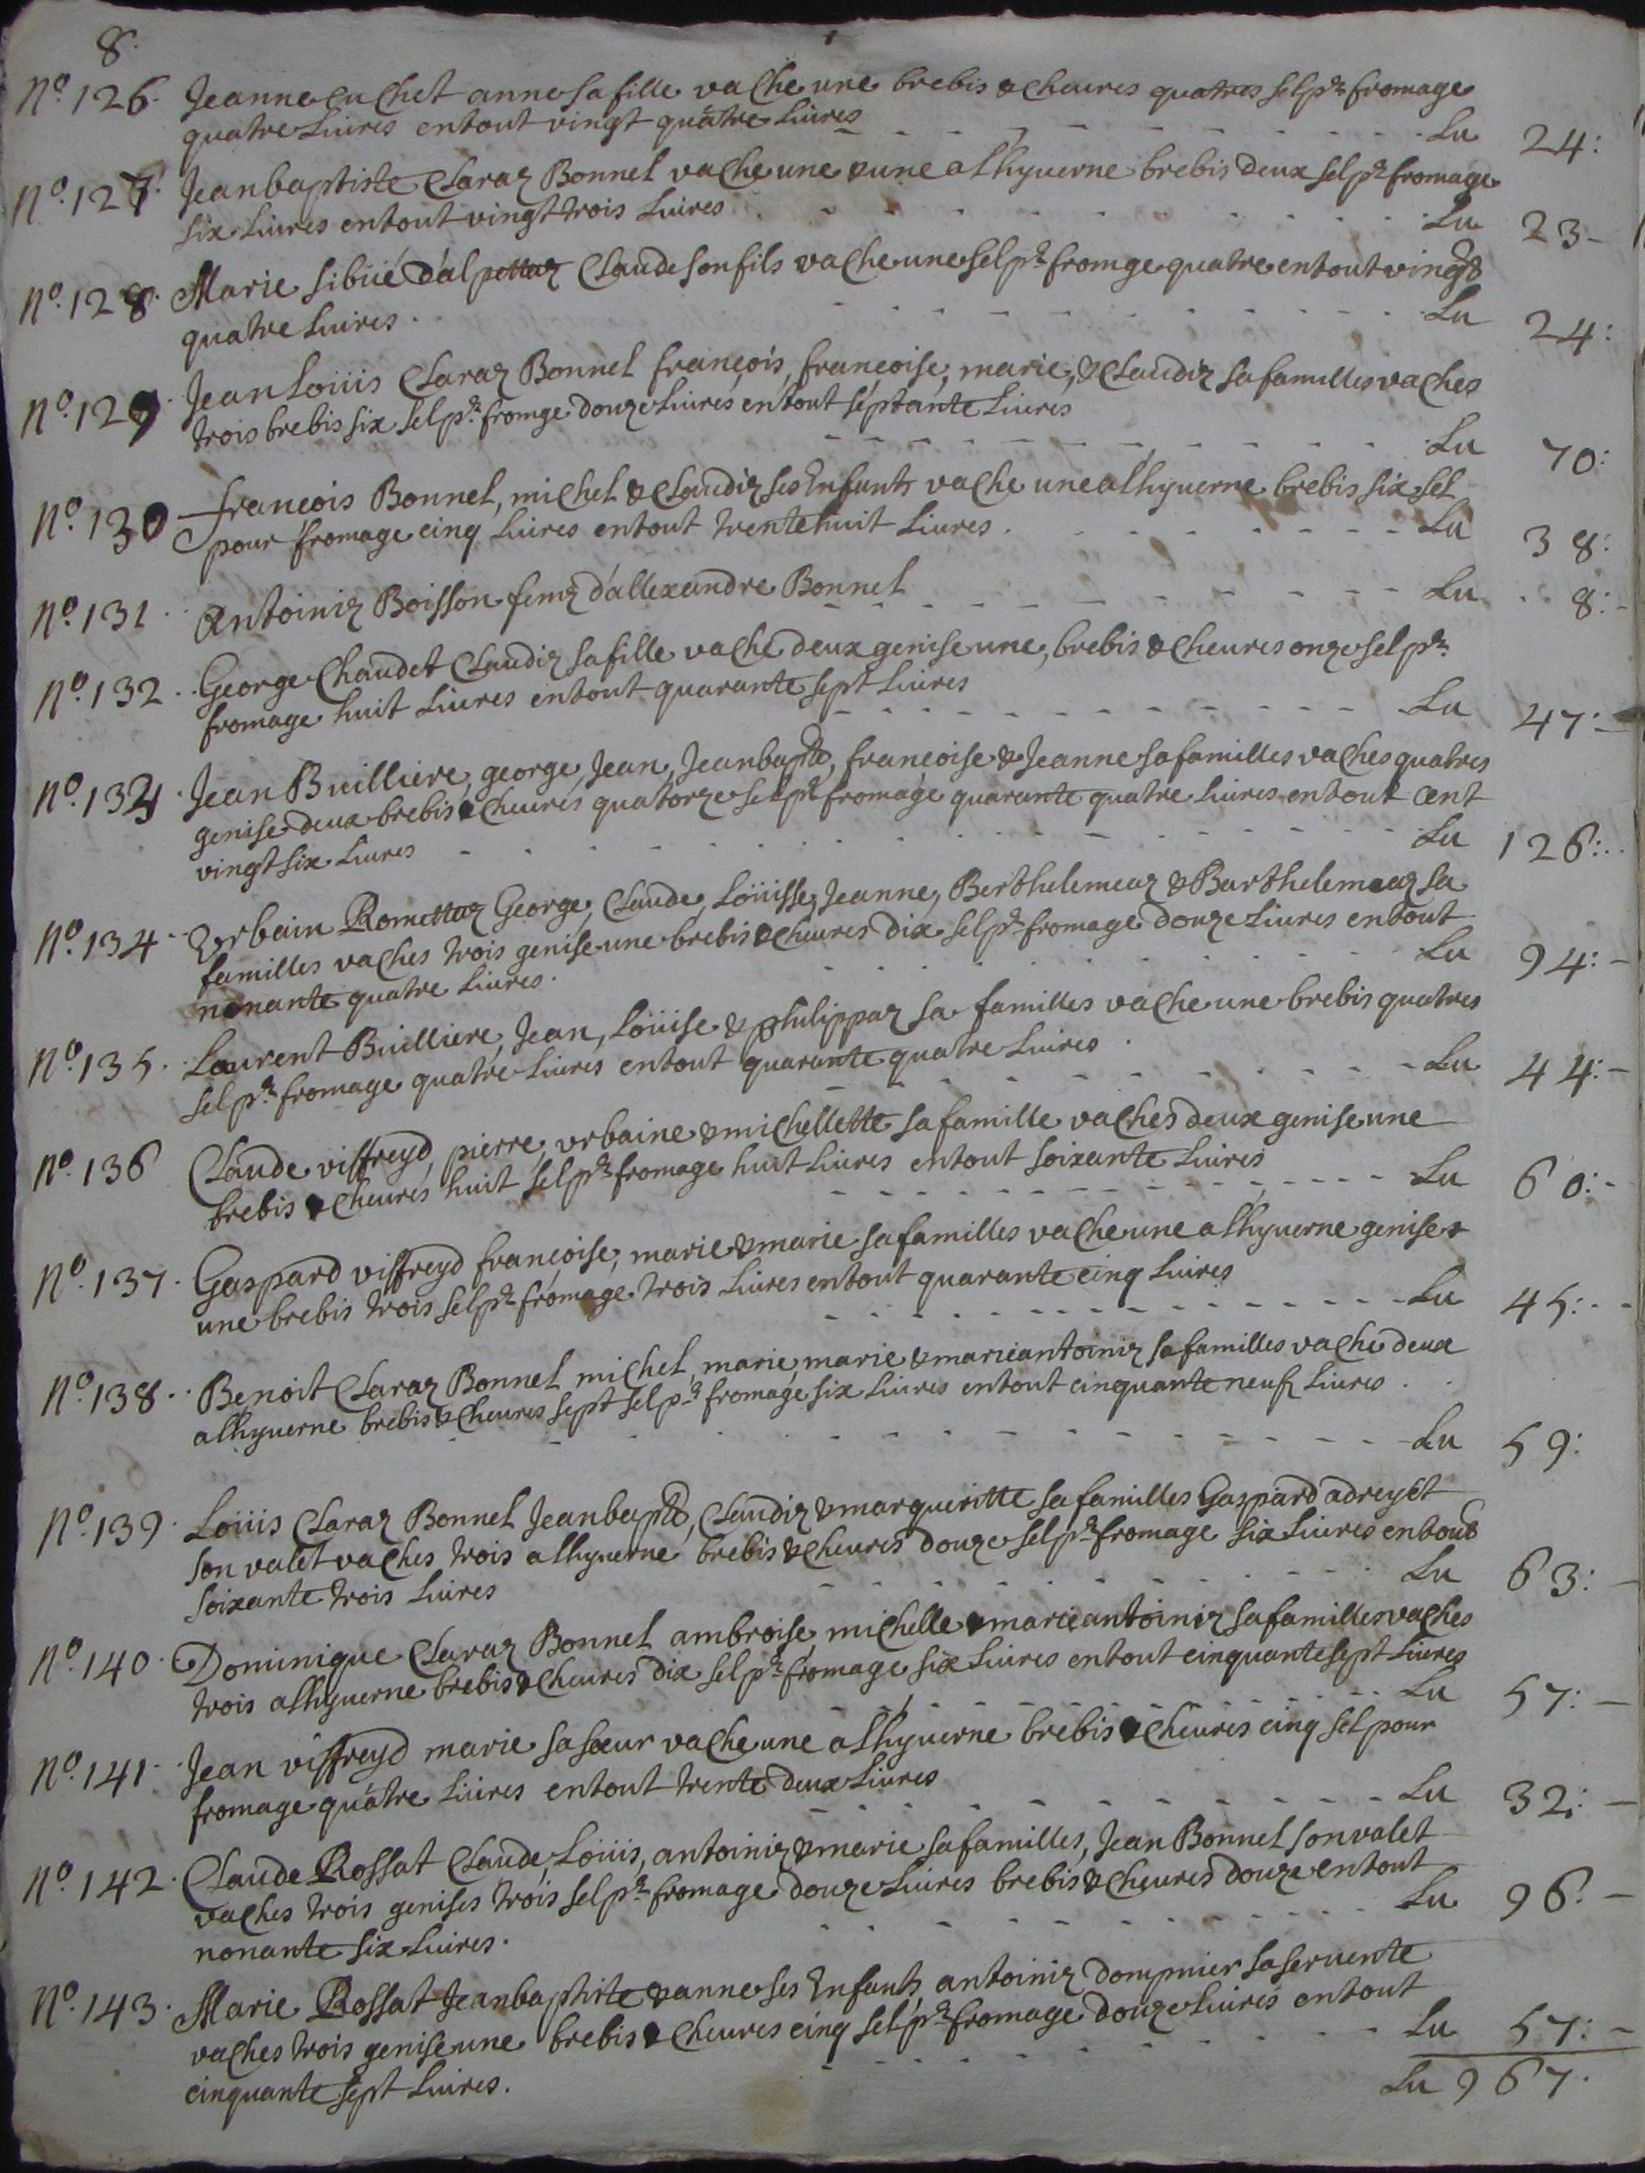 8.
No. 126. Jeanne Cuchet anne sa fille vache une brebis & cheures quatres sel pr. fromage
quatre Liures entout vingt quatre Liures - - - Lu 24:
No. 127. Jeanbaptiste Claraz Bonnel vache une & une alhyuerne brebis deux sel pr. fromage
six Liures entout vingt trois Liures - - - Lu 23-
No. 128. Marie sibüé d'alpettaz Claude son fils vache une sel pr. fromge quatre entout vingt
quatre Liures. - - - Lu 24:
No. 129. Jean Loüis Claraz Bonnel françois, francoise, marie, & Claudiz sa familles vaches
trois brebis six sel pr. fromge douze Liures entout séptante Liures - - - Lu 70:
No. 130 francois Bonnel, michel & Claudiz ses Enfants vache une alhyuerne brebis six sel
pour fromage cinq Liures entout trente huit Liures. - - - Lu 38:
No. 131. Antoiniz Boisson femz d'allexandre Bonnel - - - Lu 8:-
No. 132. George Chaudet Claudiz sa fille vache deux genise une, brebis & cheures onze sel pr.
fromage huit Liures entout quarante sept Liures - - - Lu 47:-
No. 133. Jean Builliere, george, Jean, Jeanbapte, francoise & Jeanne sa familles vaches quatres
genise deux brebis & cheures quatorze sel pr. fromage quarante quatre Liures entout cent
vingt six Liures - - - Lu 126:..
No. 134. Vrbain Romettaz George, Claude, Loüisse, Jeanne, Berthelemeaz & Barthelemeaz sa
familles vaches trois genise une brebis & cheures dix sel pr. fromage douze Liures entout
nonante quatre Liures. - - - Lu 94:-
No. 135. Laurent Buillieré, Jean, Loüise & philippaz sa familles vache une brebis quatres
sel pr. fromage quatre Liures entout quarante quatre Liures. - - - Lu 44:-
No. 136 Claude viffreyd, pierre, vrbaine & michellette sa famille vaches deux genise une
brebis & cheures huit sel pr. fromage huit Liures entout soixante Liures - - - Lu 60:-
No. 137. Gaspard viffreyd francoise, marie & marie sa familles vache une alhyuerne genise
une brebis trois sel pr. fromage trois Liures entout quarante cinq Liures - - - Lu 45:--
No. 138. Benoit Claraz Bonnel michel, marie, marie & marieantoiniz sa familles vache deux
alhyuerne brebis & cheures sept sel pr. fromage six Liures entout cinquante neufz Liures . .
- - - Lu 59:
No. 139. Loüis Claraz Bonnel Jeanbapte, Claudiz & margueritte sa familles Gaspard adreyét
son valet vaches trois alhyuerne brebis & cheures douze sel pr. fromage six Liures entout
soixante trois Liures - - - Lu 63:-
No. 140. Dominique Claraz Bonnel ambroise, michelle & marieantoiniz sa familles vaches
trois alhyuerne brebis & cheures dix sel pr. fromage six Liures entout cinquante sept Liures
- - - Lu 57:-
No. 141. Jean viffreyd marie sa sœur vache une alhyuerne brebis & cheures cinq sel pour
fromage quatre Liures entout trente deux Liures - - - Lu 32:-
No. 142. Claude Rossat Claude, Loüis, antoiniz & marie sa familles, Jean Bonnel son valet
vaches trois genises trois sel pr. fromage douze Liures brebis & cheures douze entout
nonante six Liures. - - - Lu 96:-
No. 143. Marie Rossat Jeanbaptiste & anne ses Enfants antoiniz dompnier sa seruente
vaches trois genise une brebis & cheures cinq sel pr. fromage douze Liures entout
cinquante sept Liures. - - - Lu 57:-
Lu 967.